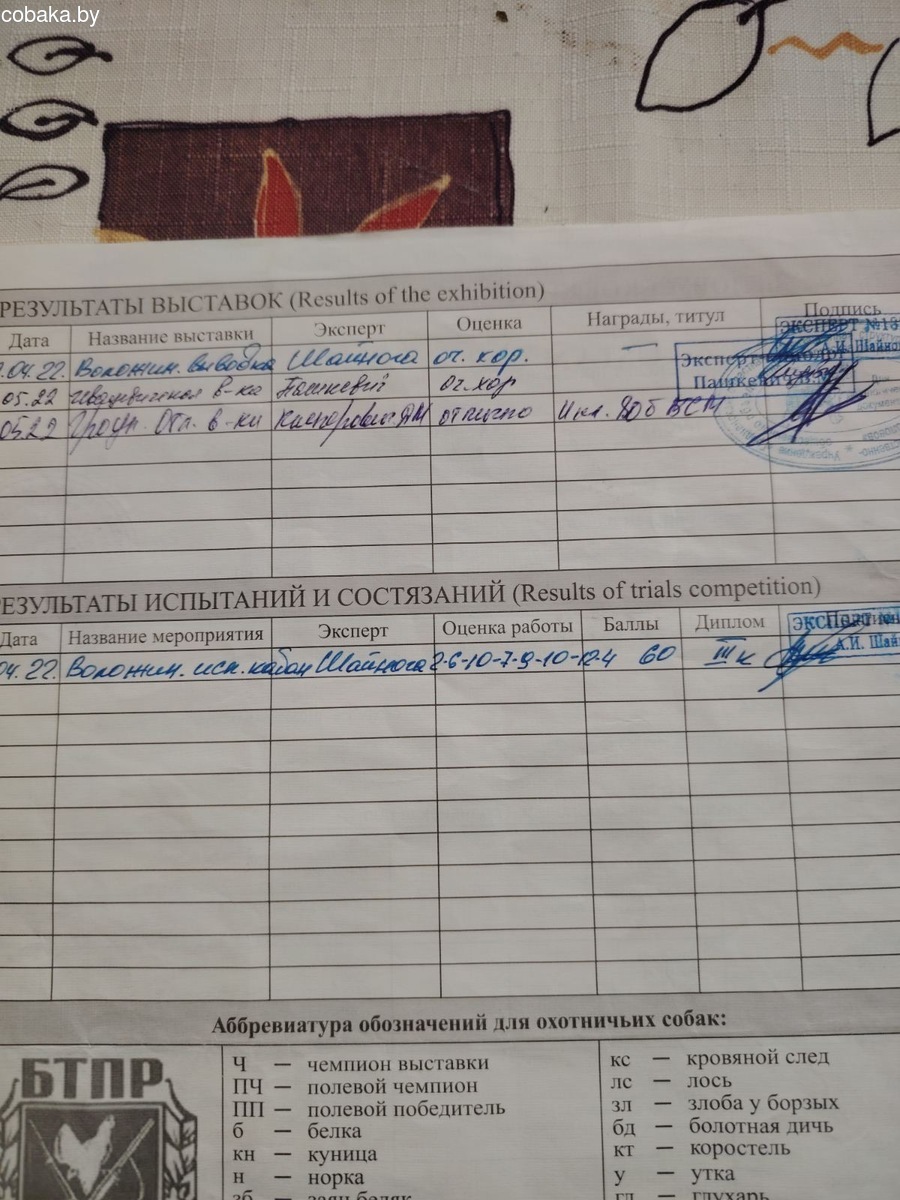 cobaka.by
РЕЗУЛЬТАТЫ ВЫСТАВОК (Results of the exhibition)
Дата Название выставки Эксперт Оценка Награды, титул Подпись
.04.22. Воложин. выводка Шайнога оч. хор. —
05.22 в-ка Пашкевич Оч. хор
05.22 в-ки отлично
ЭКСПЕРТ №13
А.И. Шайно
РЕЗУЛЬТАТЫ ИСПЫТАНИЙ И СОСТЯЗАНИЙ (Results of trials competition)
Дата Название мероприятия Эксперт Оценка работы Баллы Диплом
04.22. Воложин. исп. кабан Шайнога 2-6-10-7-9-10-12-4 60 III к
ЭКСПЕРТ
А.И. Шай
Аббревиатура обозначений для охотничьих собак:
БТПР
Ч — чемпион выставки
ПЧ — полевой чемпион
ПП — полевой победитель
б — белка
кн — куница
н — норка
зб — заяц беляк
кс — кровяной след
лс — лось
зл — злоба у борзых
бд — болотная дичь
кт — коростель
у — утка
гл — глухарь